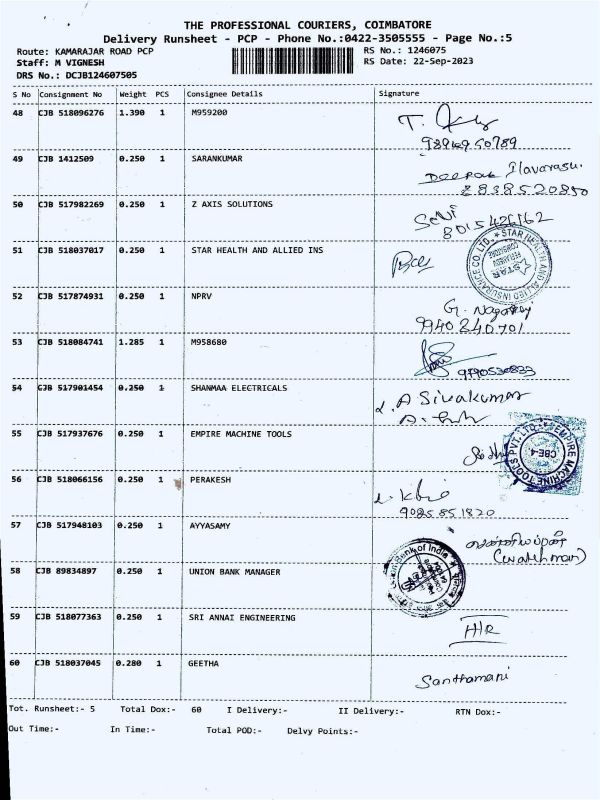 THE PROFESSIONAL COURIERS, COIMBATORE
Delivery Runsheet - PCP - Phone No.:0422-3505555 - Page No.:5
Route: KAMARAJAR ROAD PCP RS No.: 1246075
Staff: M VIGNESH RS Date: 22-Sep-2023
DRS No.: DCJB124607505
S No Consignment No Weight PCS Consignee Details Signature
48 CJB 518096276 1.390 1 M959200
49 CJB 1412509 0.250 1 SARANKUMAR
Deepak Ilavarasu.
2838520850
50 CJB 517982269 0.250 1 Z AXIS SOLUTIONS
8015426162
51 CJB 518037017 0.250 1 STAR HEALTH AND ALLIED INS
STAR HEALTH AND ALLIED INSURANCE CO. LTD.
STAR
52 CJB 517874931 0.250 1 NPRV
9940240701
53 CJB 518084741 1.285 1 M958680
9790530833
54 CJB 517901454 0.250 1 SHANMAA ELECTRICALS
A Sivakumar
55 CJB 517937676 0.250 1 EMPIRE MACHINE TOOLS
EMPIRE MACHINE TOOLS PVT. LTD.
CBE-4
56 CJB 518066156 0.250 1 PERAKESH
9025851820
57 CJB 517948103 0.250 1 AYYASAMY
(watchman)
58 CJB 89834897 0.250 1 UNION BANK MANAGER
Union Bank of India
59 CJB 518077363 0.250 1 SRI ANNAI ENGINEERING
60 CJB 518037045 0.280 1 GEETHA
Santhamani
Tot. Runsheet:- 5 Total Dox:- 60 I Delivery:- II Delivery:- RTN Dox:-
Out Time:- In Time:- Total POD:- Delvy Points:-